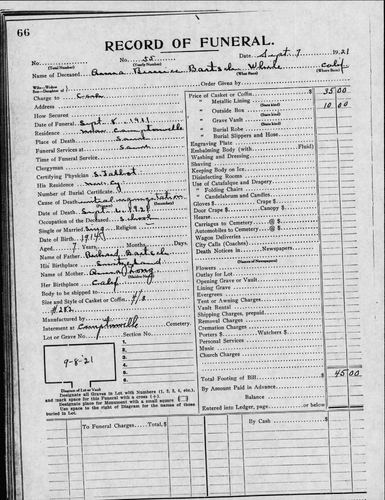 66
RECORD OF FUNERAL.
No. No. 55 Date Sept. 7 1921
(Total Number) (Yearly Number)
Name of Deceased Anna Bernice Bartsch White Calif
(What Race) (Where Born)
Charge to Cash Order Given by
Address
How Secured
Date of Funeral Sept. 8, 1921
Residence near Camptonville
Place of Death Same
Funeral Services at Same
Time of Funeral Service
Clergyman
Certifying Physician S. Talbot
His Residence Nev. Cy
Number of Burial Certificate
Cause of Death mitral regurgitation
Date of Death Sept. 6, 1921
Occupation of the Deceased School
Single or Married Sing Religion
Date of Birth 1914
Aged 7 Years, Months, Days.
Name of Father Bartsch
His Birthplace Switzerland
Name of Mother Anna Long
Her Birthplace Calif
Body to be shipped to
Size and Style of Casket or Coffin 4/3
Manufactured by
Interment at Camptonville Cemetery.
Lot or Grave No. Section No.
9-8-21
1.
2.
3.
4.
5.
6.
Diagram of Lot or Vault
Designate all Graves in Lot with Numbers (1, 2, 3, 4, etc.),
and mark space for this Funeral with a cross (+).
Designate place for Monument with a small square
Use space to right of Diagram for names of those
buried in Lot.
Price of Casket or Coffin 35 00
" Metallic Lining
" Outside Box 10 00
" Grave Vault
" Burial Robe
" Burial Slippers and Hose
Engraving Plate
Embalming Body (with Fluid)
Washing and Dressing
Shaving
Keeping Body on Ice
Disinfecting Rooms
Use of Catafalque and Drapery
" Folding Chairs
" Candelabrum and Candles
Gloves $ Crepe $
Door Crape $ Canopy $
Carriages to Cemetery @ $
Automobiles to Cemetery @ $
Wagon Deliveries
City Calls (Coaches)
Death Notices in Newspapers
(Names of Newspapers)
Flowers
Outlay for Lot
Opening Grave or Vault
Lining Grave
Evergreen
Tent or Awning Charges
Vault Rental
Shipping Charges, prepaid
Removal Charges
Cremation Charges
Porters $ Watchers $
Personal Services
Music
Church Charges
Total Footing of Bill 45 00
By Amount Paid in Advance
Balance
Entered into Ledger, page or below
To Funeral Charges - Total, $ By Cash $